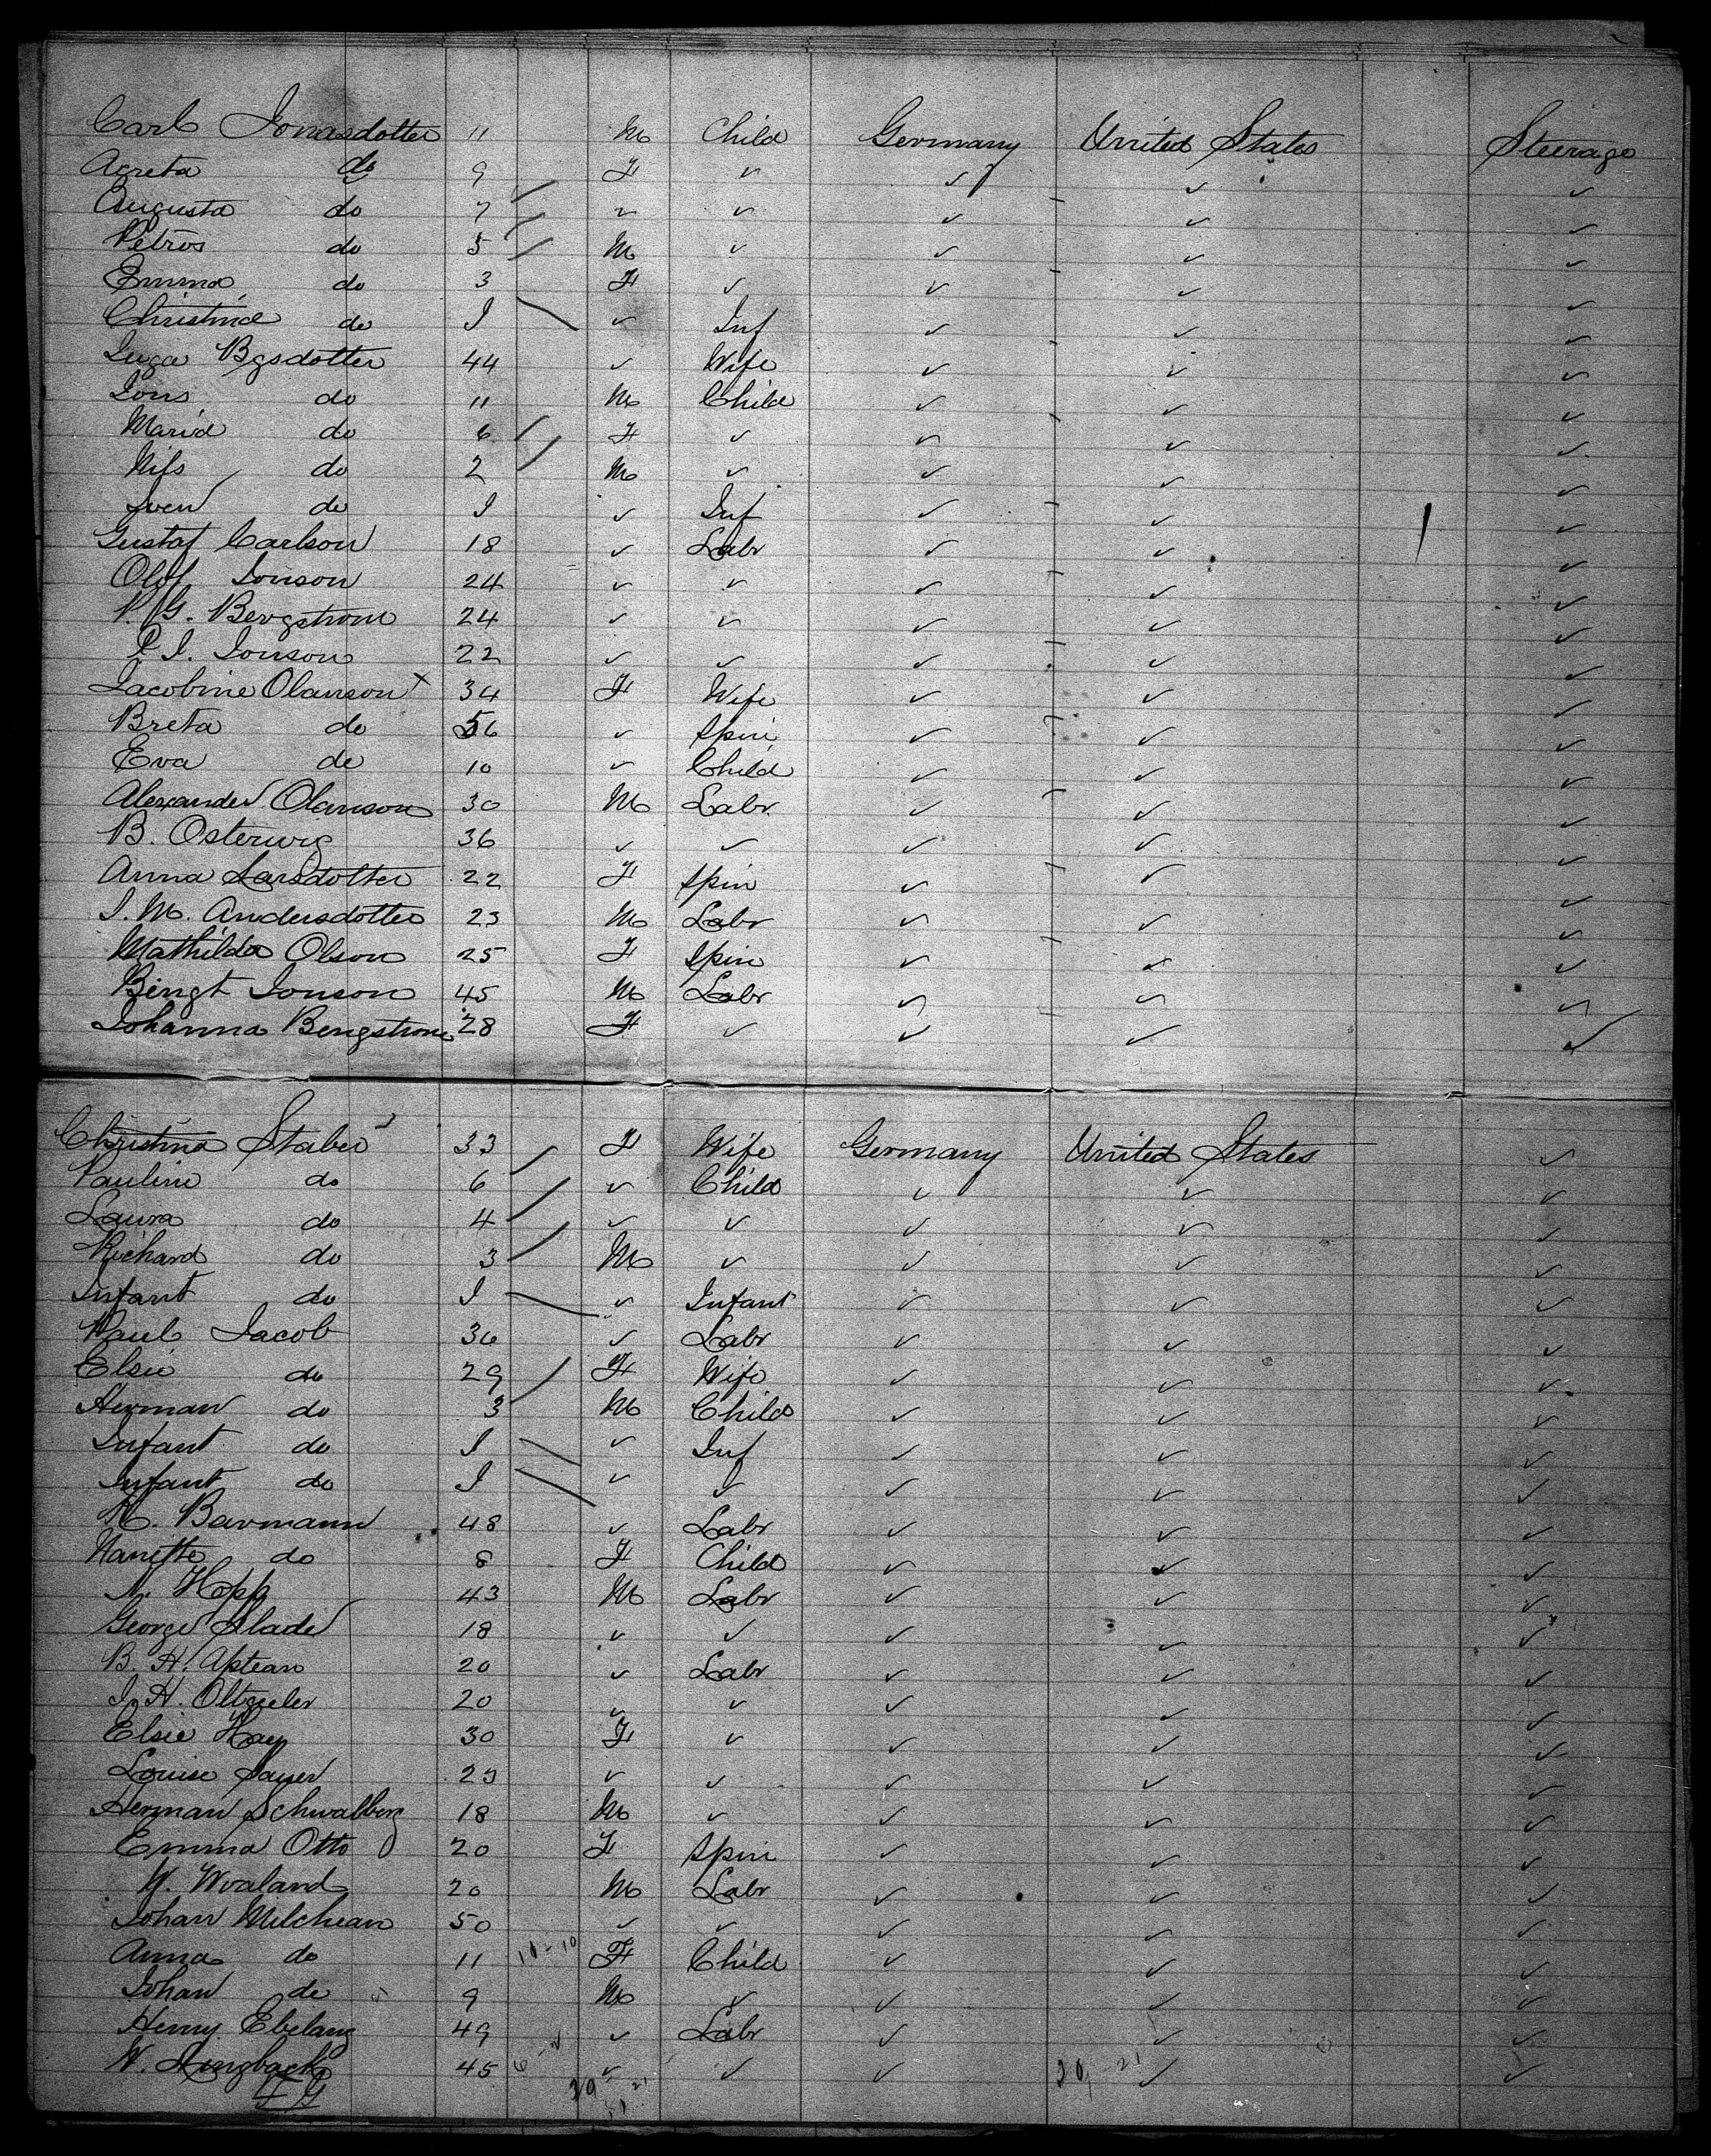 Carl Jonasdotter 11 M Child Germany United States Steerage
Acreta do 9 F ✓ ✓ ✓ ✓
Augusta do 7 ✓ ✓ ✓ ✓ ✓
Petros do 5 M ✓ ✓ ✓ ✓
Emma do 3 F ✓ ✓ ✓ ✓
Christine do I ✓ Inf ✓ ✓ ✓
Inga Bgsdotter 44 ✓ Wife ✓ ✓ ✓
Jons do 11 M Child ✓ ✓ ✓
Maria do 6 F ✓ ✓ ✓ ✓
Nils do 2 M ✓ ✓ ✓ ✓
Sven do I ✓ Inf ✓ ✓ ✓
Gustaf Carlson 18 ✓ Labr ✓ ✓ ✓
Olof Jonson 24 ✓ ✓ ✓ ✓ ✓
P. G. Bergstrom 24 ✓ ✓ ✓ ✓ ✓
P. I. Jonson 22 ✓ ✓ ✓ ✓ ✓
Jacobine Olanson x 34 F Wife ✓ ✓ ✓
Breta do 56 ✓ Spin ✓ ✓ ✓
Eva do 10 ✓ Child ✓ ✓ ✓
Alexander Olanson 30 M Labr. ✓ ✓ ✓
B. Osterwig 36 ✓ ✓ ✓ ✓ ✓
Anna Larsdotter 22 F Spin ✓ ✓ ✓
I. M. Andersdotter 23 M Labr ✓ ✓ ✓
Mathilda Olson 25 F Spin ✓ ✓ ✓
Bingt Jonson 45 M Labr ✓ ✓ ✓
Johanna Bengstrom 28 F ✓ ✓ ✓ ✓
Christina Staber 33 F Wife Germany United States ✓
Pauline do 6 ✓ Child ✓ ✓ ✓
Laura do 4 ✓ ✓ ✓ ✓ ✓
Richard do 3 M ✓ ✓ ✓ ✓
Infant do I ✓ Infant ✓ ✓ ✓
Paul Jacob 36 ✓ Labr ✓ ✓ ✓
Elsie do 29 F Wife ✓ ✓ ✓
Herman do 3 M Child ✓ ✓ ✓
Infant do I ✓ Inf ✓ ✓ ✓
Infant do I ✓ ✓ ✓ ✓ ✓
H. Barmann 48 ✓ Labr ✓ ✓ ✓
Nanette do 8 F Child ✓ ✓ ✓
N. Hopp 43 M Labr ✓ ✓ ✓
George Slade 18 ✓ ✓ ✓ ✓ ✓
B. H. Aptean 20 ✓ Labr ✓ ✓ ✓
J. H. 20 ✓ ✓ ✓ ✓ ✓
Elsie Hay 30 F ✓ ✓ ✓ ✓
Louise Sauer 23 ✓ ✓ ✓ ✓ ✓
Herman Schwalberg 18 M ✓ ✓ ✓ ✓
Emma Otto 20 F Spin ✓ ✓ ✓
W. Woaland 20 M Labr ✓ ✓ ✓
Johan Milchean 50 ✓ ✓ ✓ ✓ ✓
Anna do 11 11-10 F Child ✓ ✓ ✓
Johan do 9 M ✓ ✓ ✓ ✓
Henry Ebelang 49 ✓ Labr ✓ ✓ ✓
W. 45 ✓ ✓ ✓ ✓ ✓